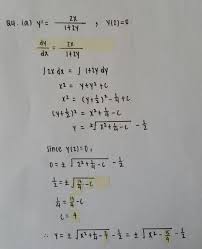 Q4. (a) y' = 2x / 1+2y , y(2)=0
dy/dx = 2x / 1+2y
∫ 2x dx = ∫ 1+2y dy
x² = y + y² + C
x² = (y+½)² - ¼ + C
(y+½)² = x² + ¼ - C
y = ±√x²+¼-C - ½
Since y(2)=0,
0 = ±√2²+¼-C - ½
½ = ±√17/4 - C
¼ = 17/4 - C
C = 4
∴ y = ±√x²+¼-4 - ½ = ±√x²-15/4 - ½